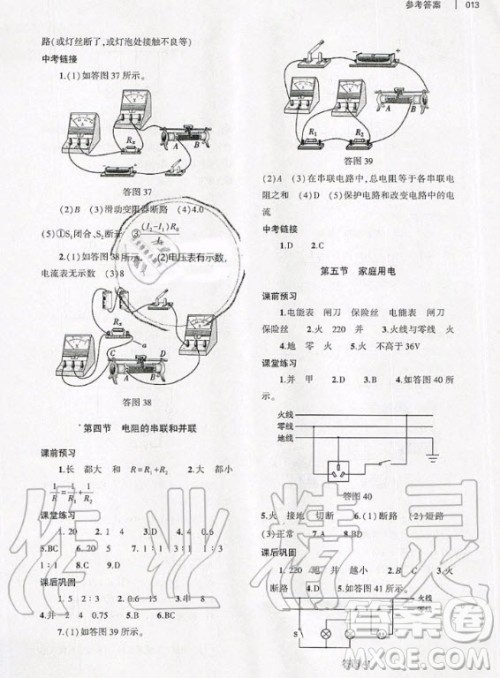 参考答案 013
路(或灯丝断了,或灯泡处接触不良等)
中考链接
1.(1)如答图 37 所示。
答图 37
(2)B (3)滑动变阻器断路 (4)4.0
(5)①S₁闭合、S₂断开
2.(1)如答图 38 所示 (2)电压表有示数,
电流表无示数 (3)8
答图 38
第四节 电阻的串联和并联
课前预习
1.长 都大 和 R=R₁+R₂ 2.都小
课堂练习
1.20
5.BC
课后巩固
1.30 2 2.0.6 15 3.BC
4.并 2.4 0.75 5.B 6.BC
7.(1)如答图 39 所示。
答图 39
(2)A (3)在串联电路中,总电阻等于各串联电
阻之和 (4)D (5)保护电路和改变电路中的电
流
中考链接
1.D 2.C
第五节 家庭用电
课前预习
1.电能表 闸刀 保险丝 电能表 闸刀
保险丝 2.火 220 并 3.火线与零线 火
4.地 零 火 火 5.不高于 36V
课堂练习
1.并 甲 2.D 3.D 4.如答图 40 所
示。
火线
零线
地线
答图 40
5.火 接地 切断 6.(1)断路 (2)短路
(3)正常 7.A 8.D
课后巩固
1.220 火 并 越小
断路 5.如答图 41 所示。
火线
零线
作业精灵
答案圈
MXQE.COM